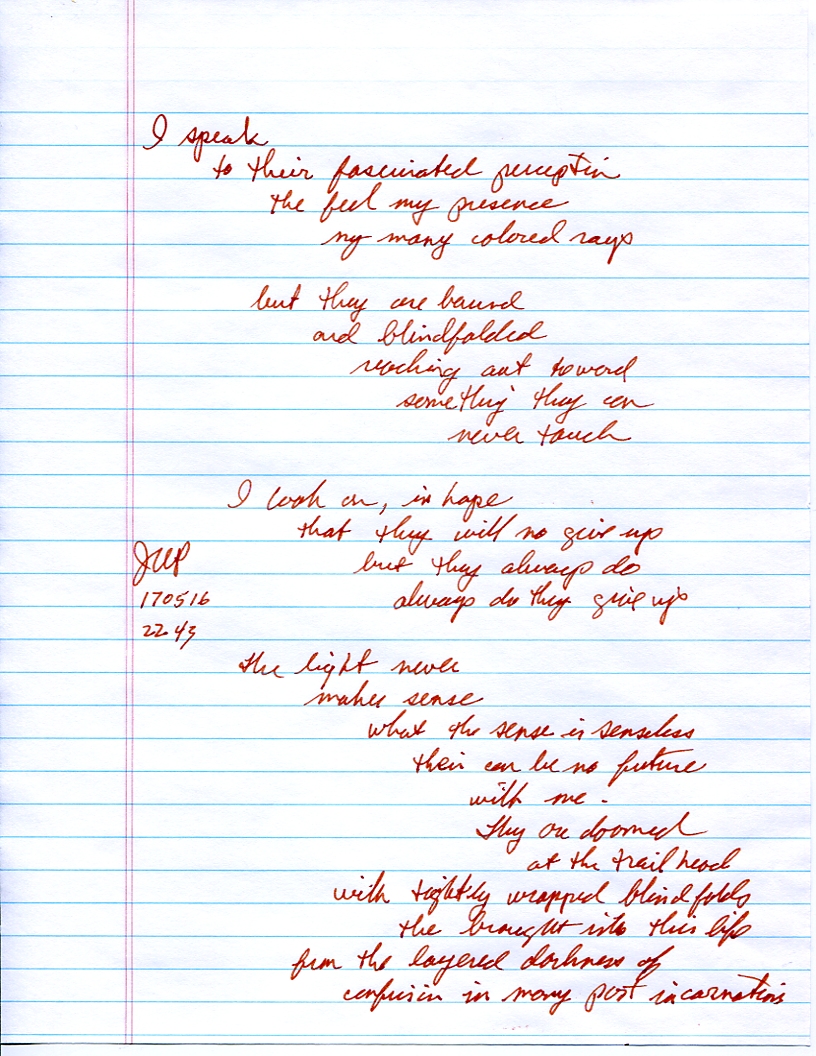 I speak
to their fascinated perception
the feel my presence
my many colored rays
but they are bound
and blindfolded
reaching out toward
something they can
never touch
I look on, in hope
that they will no give up
but they always do
always do they give up
JWP
170516
22 43
the light never
makes sense
what the sense is senseless
their can be no future
with me.
They are doomed
at the trail head
with tightly wrapped blindfolds
the brought into this life
from the layered darkness of
confusion in many past incarnations